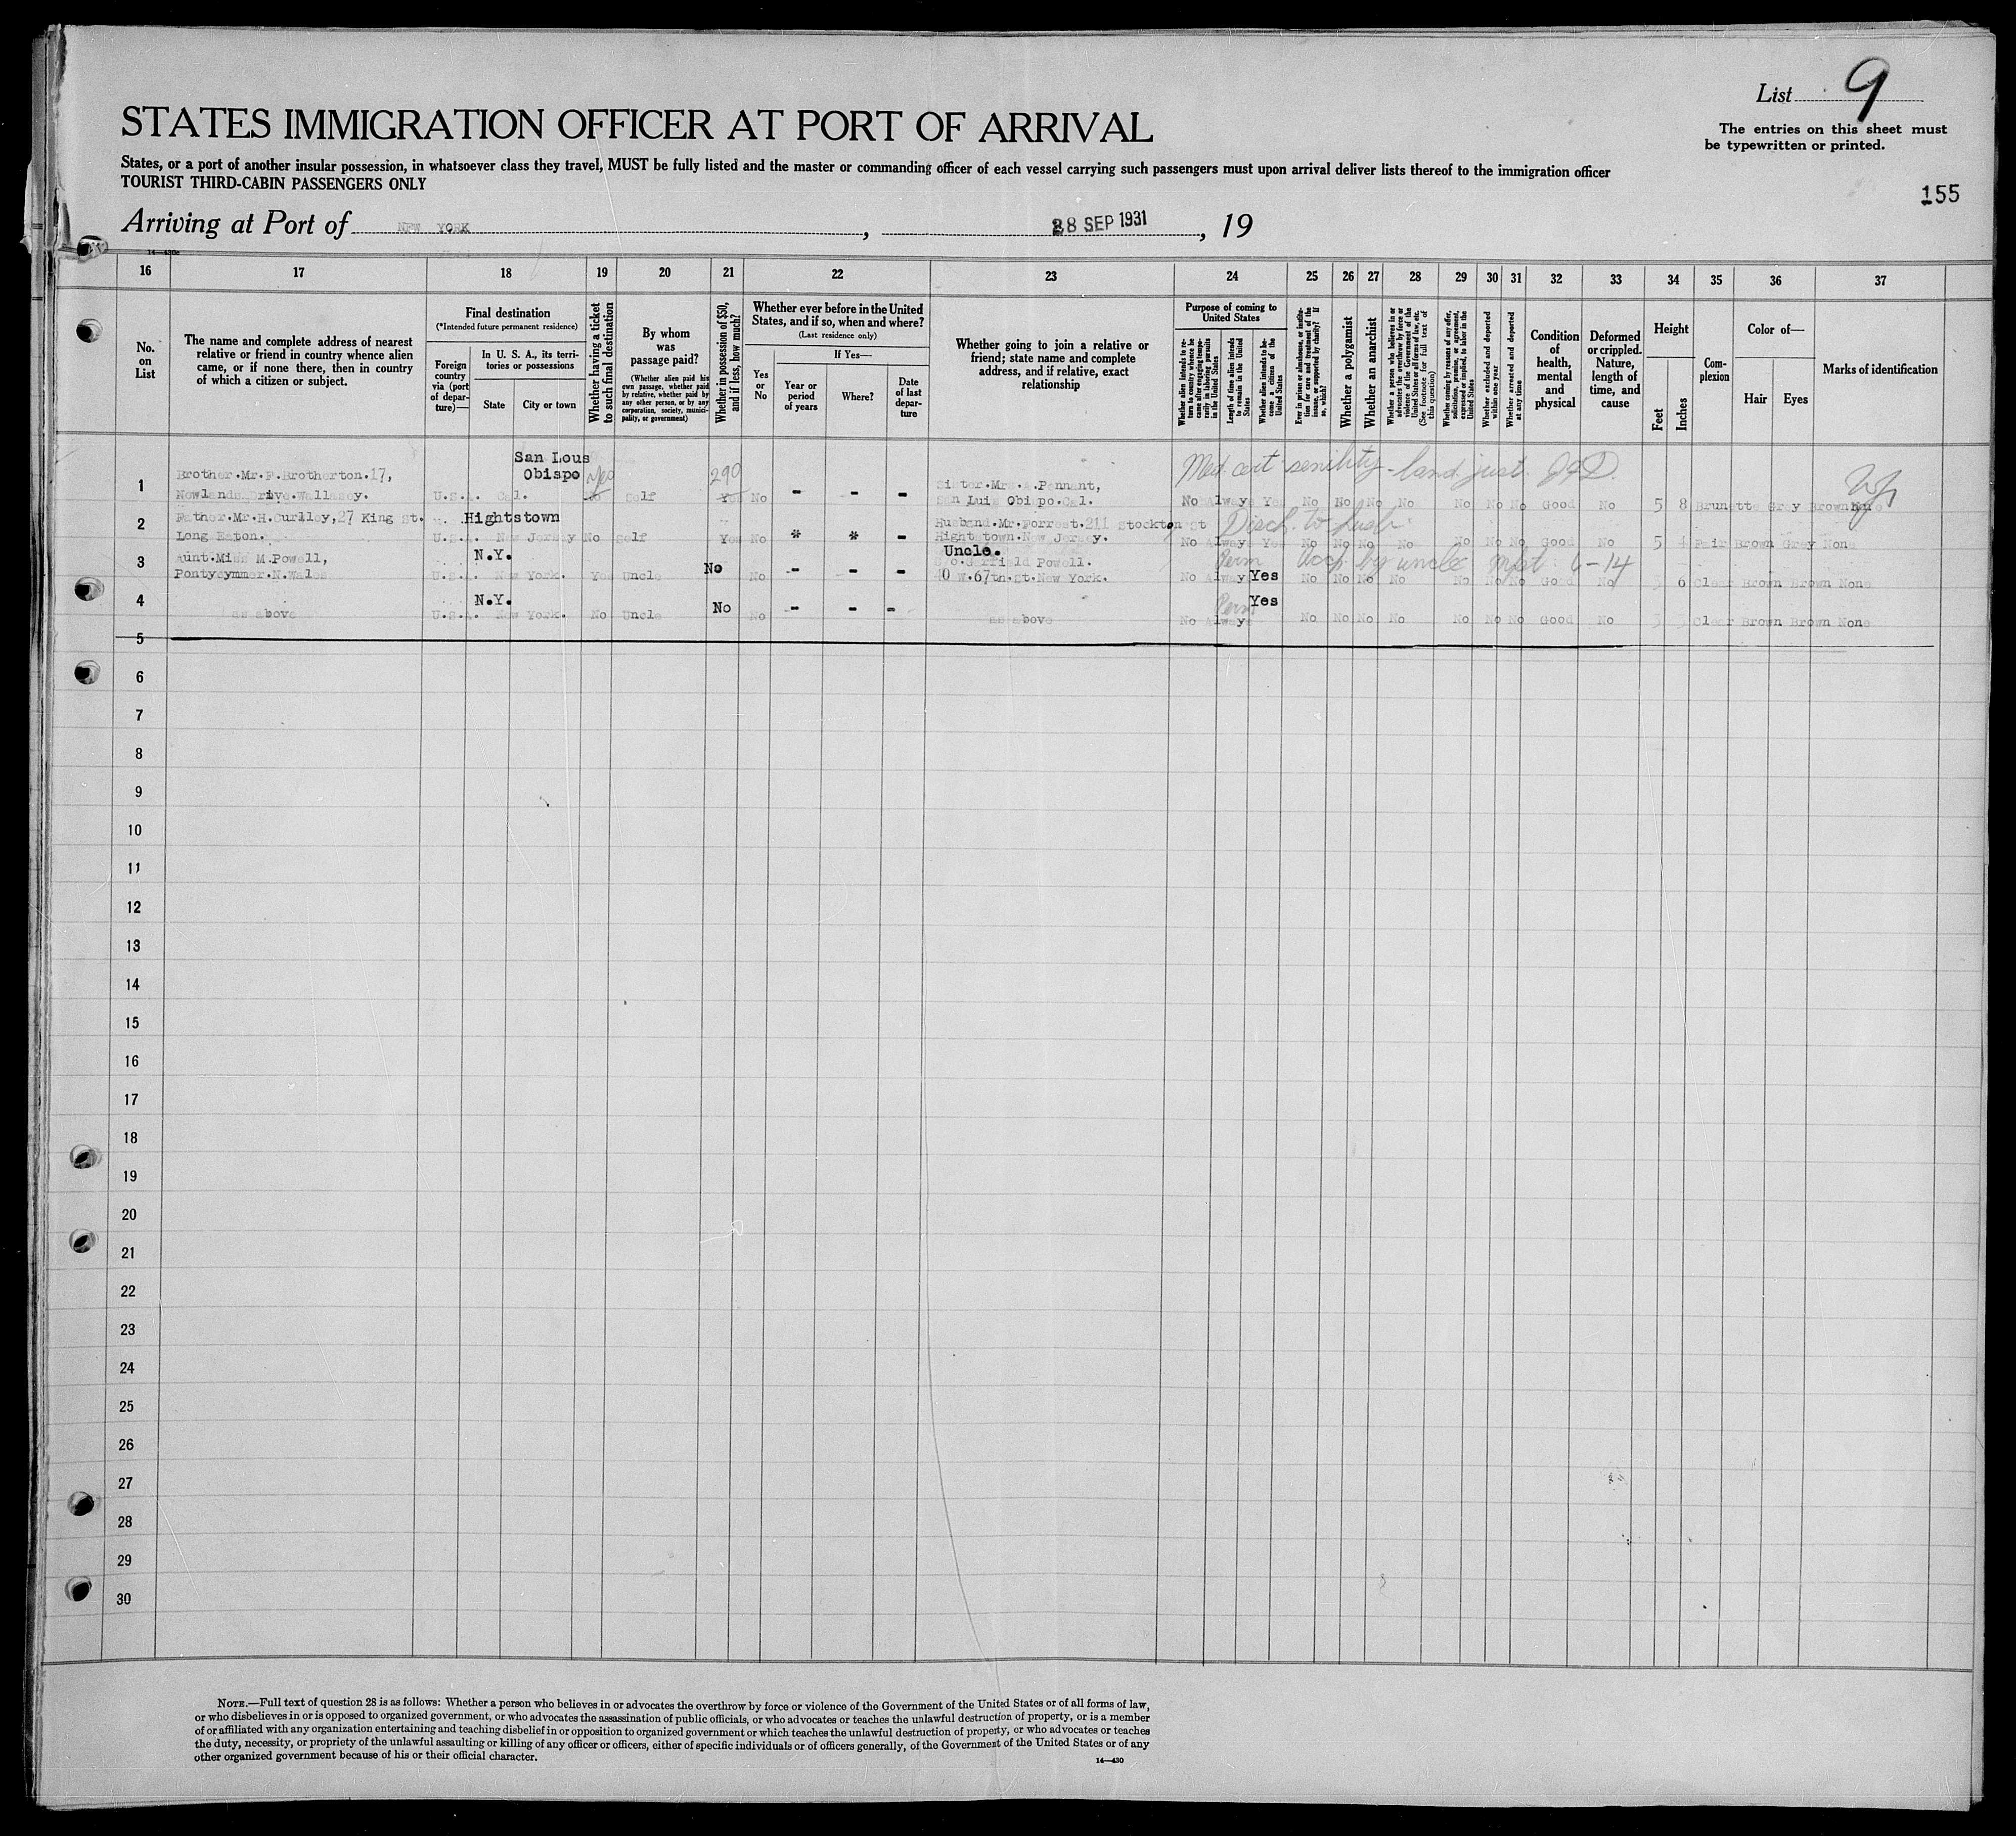 List 9
The entries on this sheet must
be typewritten or printed.
STATES IMMIGRATION OFFICER AT PORT OF ARRIVAL
States, or a port of another insular possession, in whatsoever class they travel, MUST be fully listed and the master or commanding officer of each vessel carrying such passengers must upon arrival deliver lists thereof to the immigration officer
TOURIST THIRD-CABIN PASSENGERS ONLY
155
Arriving at Port of NEW YORK, 28 SEP 1931, 19
14—430c
16 17 18 19 20 21 22 23 24 25 26 27 28 29 30 31 32 33 34 35 36 37
No. on List
The name and complete address of nearest
relative or friend in country whence alien
came, or if none there, then in country
of which a citizen or subject.
Final destination
(*Intended future permanent residence)
Foreign country via (port of departure)—
In U. S. A., its territories or possessions
State
City or town
Whether having a ticket to such final destination
By whom was passage paid?
(Whether alien paid his own passage, whether paid by relative, whether paid by any other person, or by any corporation, society, municipality, or government)
Whether in possession of $50, and if less, how much?
Whether ever before in the United States, and if so, when and where?
(Last residence only)
Yes or No
If Yes—
Year or period of years
Where?
Date of last departure
Whether going to join a relative or
friend; state name and complete
address, and if relative, exact
relationship
Purpose of coming to United States
Whether alien intends to return to country whence he came after engaging temporarily in laboring pursuits in the United States
Length of time alien intends to remain in the United States
Whether alien intends to become a citizen of the United States
Ever in prison or almshouse, or institution for care and treatment of the insane, or supported by charity? If so, which?
Whether a polygamist
Whether an anarchist
Whether a person who believes in or advocates the overthrow by force or violence of the Government of the United States or all forms of law, etc. (See footnote for full text of this question)
Whether coming by reasons of any offer, solicitation, promise, or agreement, expressed or implied, to labor in the United States
Whether excluded and deported within one year
Whether arrested and deported at any time
Condition of health, mental and physical
Deformed or crippled. Nature, length of time, and cause
Height
Feet
Inches
Complexion
Color of—
Hair
Eyes
Marks of identification
San Lous
Obispo
290
Med cert senility - land just.
1 Brother.Mr.F.Brotherton.17,
Newlands Drive.Wallasey. U.S.A. Cal. No Self Yes No - - -
Sister.Mrs.A.Pennant,
San Luis Obispo.Cal. No Always Yes No No No No No No No Good No 5 8 Brunette Grey Brown None
2 Father.Mr.H.Curlley,27 King St. Hightstown
Long Eaton. U.S.A. New Jersey No Self Yes No * * -
Husband.Mr.Forrest.211 Stockton St
Hightstown.New Jersey. Disch. to husb.
No Always Yes No No No No No No No Good No 5 4 Fair Brown Grey None
3 Aunt.Miss M.Powell, N.Y.
Pontycymmer.N.Wales U.S.A. New York. Yes Uncle No No - - -
Uncle.
Garfield Powell.
W.67th.St.New York. Perm by uncle
No Always Yes No No No No No No No Good No 5 6 Clear Brown Brown None
4 as above N.Y.
U.S.A. New York. No Uncle No No - - -
as above Perm
No Always Yes No No No No No No No Good No Clear Brown Brown None
5
6
7
8
9
10
11
12
13
14
15
16
17
18
19
20
21
22
23
24
25
26
27
28
29
30
NOTE.—Full text of question 28 is as follows: Whether a person who believes in or advocates the overthrow by force or violence of the Government of the United States or of all forms of law,
or who disbelieves in or is opposed to organized government, or who advocates the assassination of public officials, or who advocates or teaches the unlawful destruction of property, or is a member
of or affiliated with any organization entertaining and teaching disbelief in or opposition to organized government or which teaches the unlawful destruction of property, or who advocates or teaches
the duty, necessity, or propriety of the unlawful assaulting or killing of any officer or officers, either of specific individuals or of officers generally, of the Government of the United States or of any
other organized government because of his or their official character.
14—430